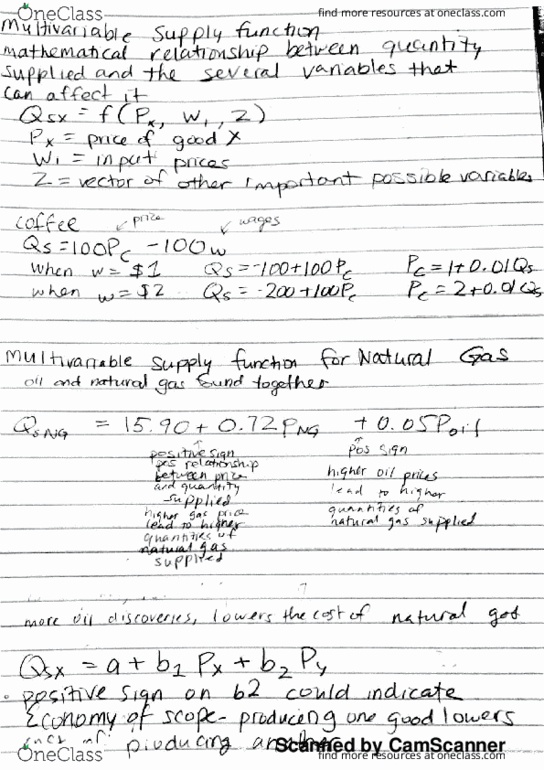 OneClass find more resources at oneclass.com
Multivariable supply function
mathematical relationship between quantity
supplied and the several variables that
can affect it
Qsx = f(Px, W1, Z)
Px = price of good X
W1 = input prices
Z = vector of other important possible variables
coffee ↙ price ↙ wages
Qs = 100Pc - 100w
when w = $1 Qs = -100+100Pc Pc = 1+0.01Qs
when w = $2 Qs = -200+100Pc Pc = 2+0.01Qs
Multivariable supply function for Natural Gas
oil and natural gas found together
QsNG = 15.90 + 0.72PNG + 0.05Poil
positive sign
pos relationship
between price
and quantity
supplied
higher gas price
lead to higher
quantities of
natural gas
supplied
pos sign
higher oil prices
lead to higher
quantities of
natural gas supplied
more oil discoveries, lowers the cost of natural gas
Qsx = a + b1 Px + b2 Py
• positive sign on b2 could indicate
Economy of scope - producing one good lowers
producing another
Scanned by CamScanner
OneClass find more resources at oneclass.com